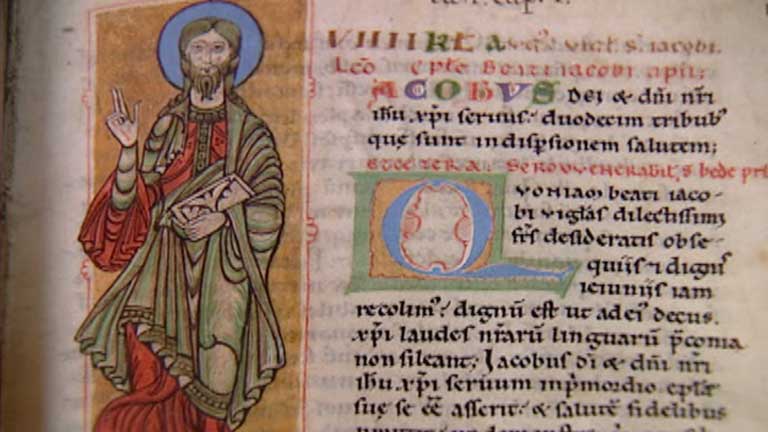 VIIII KL' A Vig'l S. Iacobi.
Lcō epl'e Beati iacobi apl'i;
IACOBVS Dei & dn̄i nr̄i
ihū xp̄i servus. duodecim tribub'
quę sunt indisp̄sionem salutem;
bede
QVONIAM beati iaco-
bi vigl'as dilectissimi
fr̄s desideratis obse-
quijs & dignis
ieiuniis iam
recolim'. dignū est ut adei decus.
xp̄i laudes nr̄arū linguarū p̄conia
non sileant; Jacobus dī & dn̄i nr̄i
ihū xp̄i servum inp̄mordio epl'ę
suę se eē asserit. & salutē fidelibus